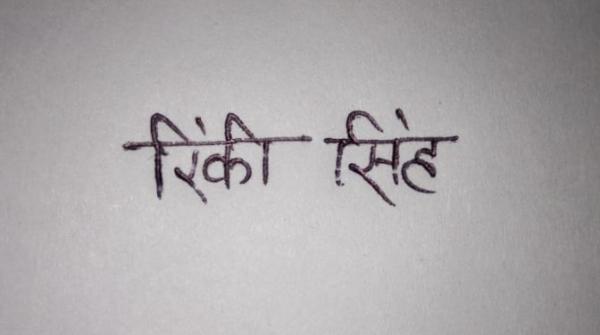 रिंकी सिंह